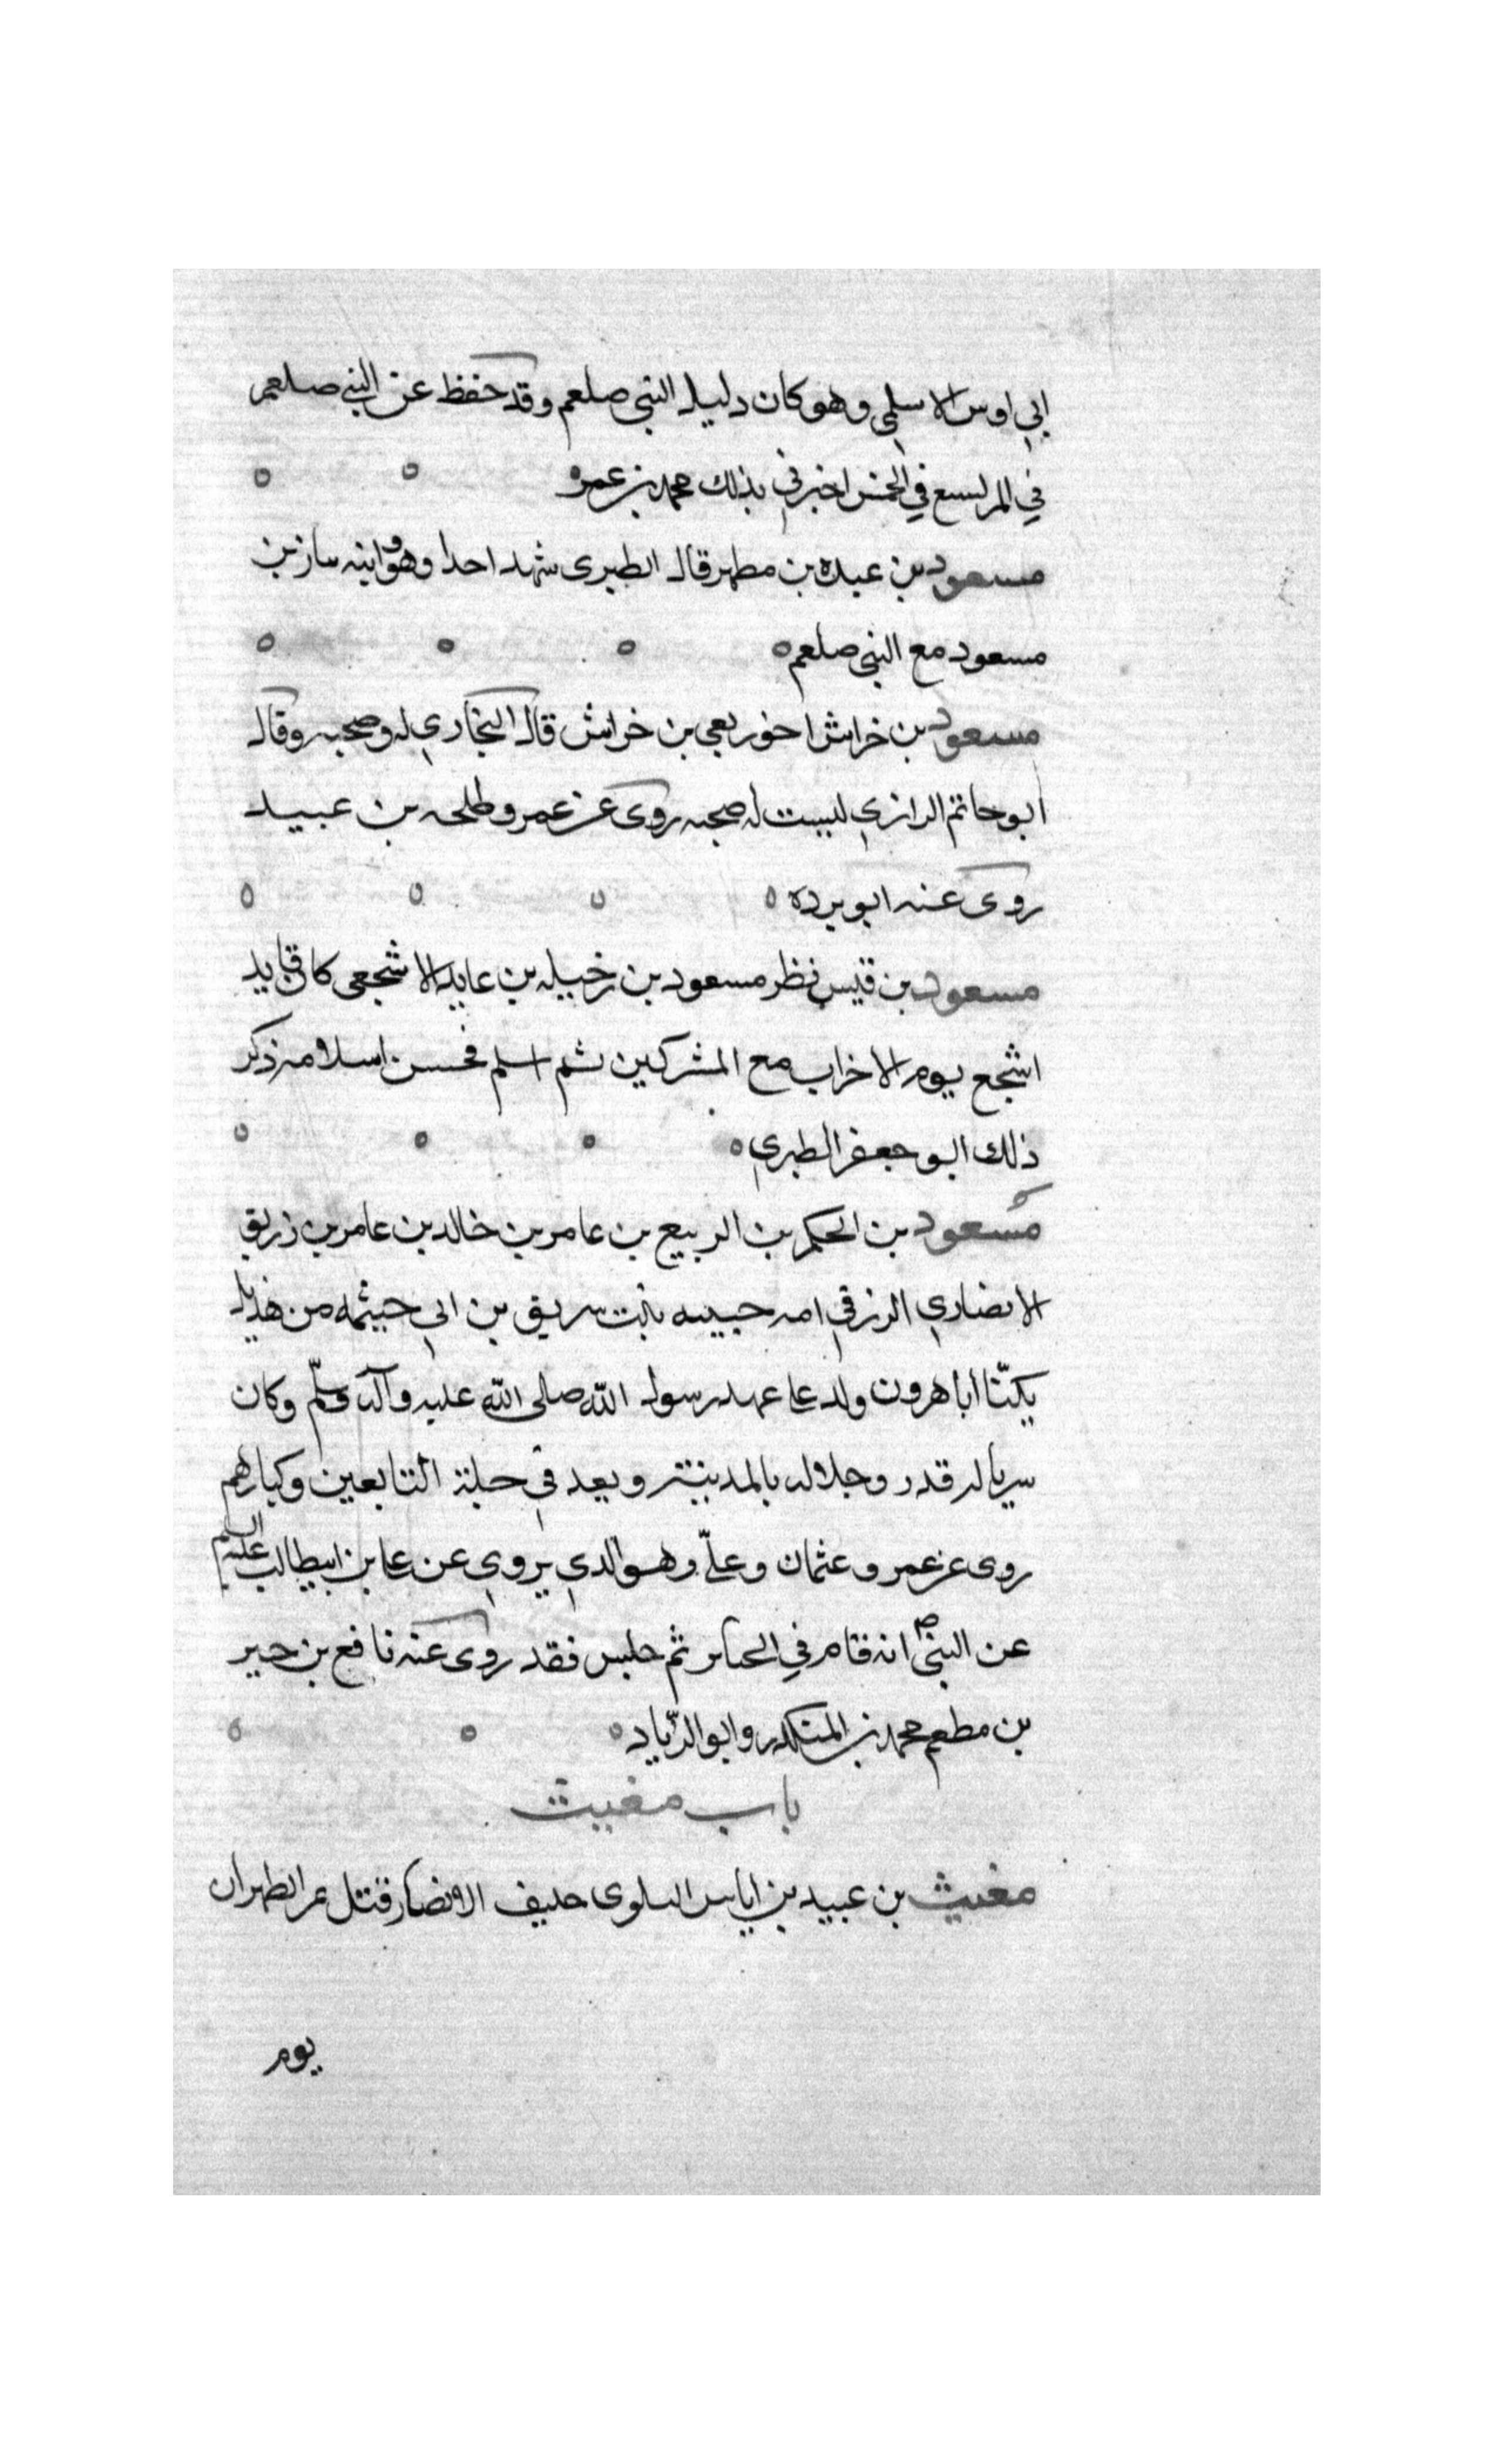 ابي اوس الاسلمي وهو كان دليل النبي صلعم وقد حفظ عن النبي صلعم
في المريسيع في الخمس اخبرني بذلك محمد بن عمر
مسعود بن عبده بن مطهر قال الطبري شهد احدا وهو وابنه ساز بن
مسعود مع النبي صلعم
مسعود بن خراش اخو ربعي بن خراش قال البخاري له صحبه وقال
ابو حاتم الرازي ليست له صحبه روى عن عمر وطلحه بن عبيد
روى عنه ابو برده
مسعود بن قيس نظر مسعود بن رخيله بن عايد الاشجعي كان قايد
اشجع يوم الاخراب مع المشركين ثم اسلم فحسن اسلامه ذكر
ذلك ابو جعفر الطبري
مسعود بن الحكم بن الربيع بن عامر بن خالد بن عامر بن زريق
الانصاري الزرقي امه حبيبه بنت شريق بن ابي حيثمه من هذيل
يكنّا ابا هرون ولد على عهد رسول الله صلى الله عليه وآله وسلّم وكان
سريا له قدر وجلاله بالمدينة ويعد في جلة التابعين وكبارهم
روى عن عمر وعثمان وعليّ وهو الذي يروي عن علي بن ابيطالب عليه السلم
عن النبي ص انه قام في الجنايز ثم جلس فقد روى عنه نافع بن جبير
بن مطعم محمد بن المنكدر وابو الزياد
باب مغيث
مغيث بن عبيد بن اياس البلوي حليف الانصار قتل بمر الظهران
يوم